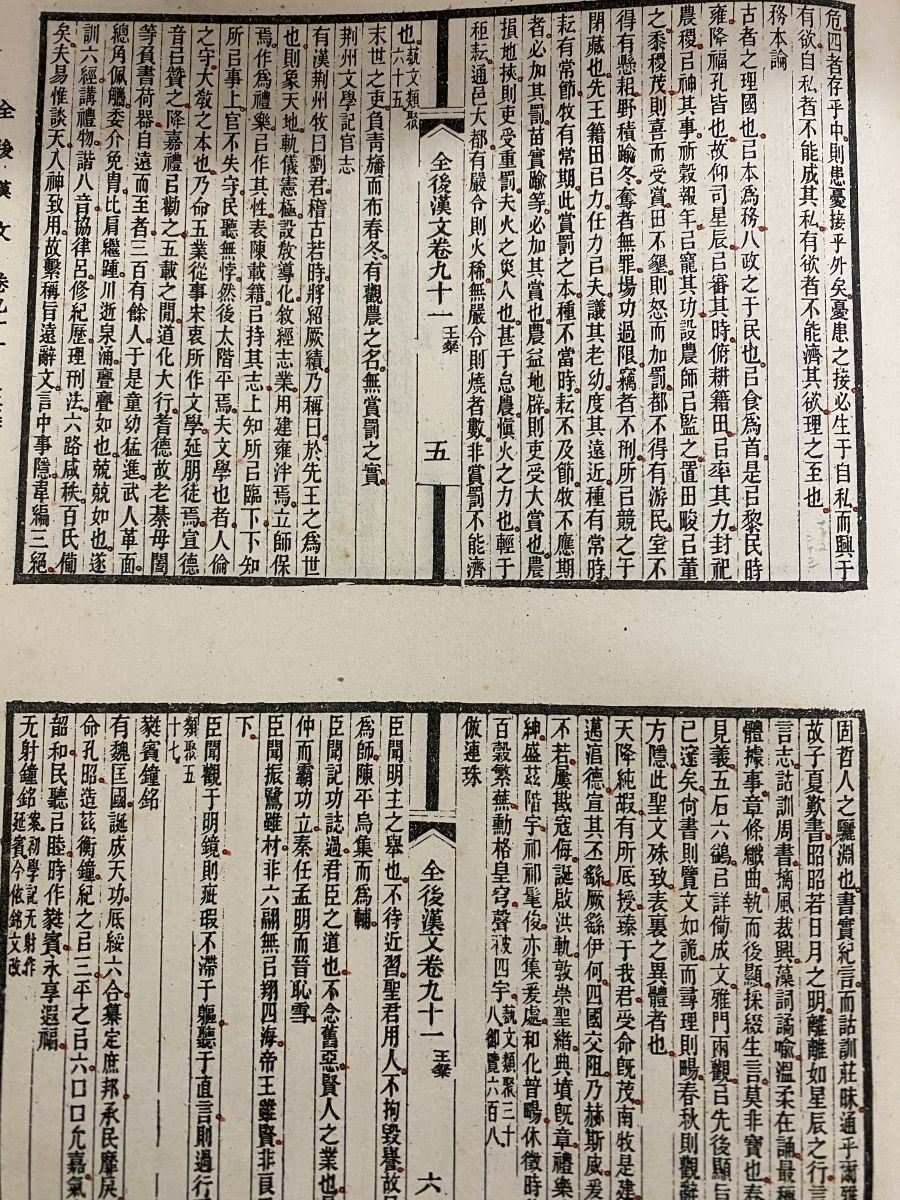 危四者存乎中則患憂接乎外矣憂患之接必生于自私而興于
有欲自私者不能成其私有欲者不能濟其欲理之至也
務本論
古者之理國也㠯本為務八政之于民也㠯食為首是㠯黎民時
雍降福孔皆也故仰司星辰㠯審其時俯耕籍田㠯率其力封祀
農稷㠯神其事祈穀報年㠯寵其功設農師㠯監之置田畯㠯董
之黍稷茂則喜而受賞田不墾則怒而加罰都不得有游民室不
得有懸耜野積踰冬奪者無罪場功過限竊者不刑所㠯競之于
閉藏也先王籍田㠯力任力㠯夫議其老幼度其遠近種有常時
耘有常節牧有常期此賞罰之本種不當時耘不及節牧不應期
者必加其罰苗實踰等必加其賞也農益地辟則吏受大賞也農
損地挾則吏受重罰夫火之災人也甚于怠農慎火之力也輕于
秬耘通邑大都有嚴令則火稀無嚴令則燒者數非賞罰不能濟
全後漢文卷九十一 王粲 五
也 藝文類聚六十五
末世之吏負青旛而布春冬有觀農之名無賞罰之實
荆州文學記官志
有漢荆州牧曰劉君稽古若時將紹厥績乃稱曰於先王之為世
也則象天地軌儀憲極設教導化敘經志業用建雍泮焉立師保
焉作為禮樂㠯作其性表陳載籍㠯持其志上知所㠯臨下下知
所㠯事上官不失守民聽無悖然後太階平焉夫文學也者人倫
之守大教之本也乃命五業從事宋衷所作文學延朋徒焉宣德
音㠯贊之降嘉禮㠯勸之五載之閒道化大行耆德故老綦毋闓
等負書荷器自遠而至者三百有餘人于是童幼猛進武人革面
總角佩觿委介免胄比肩繼踵川逝泉涌亹亹如也兢兢如也遂
訓六經講禮物諧八音協律呂修紀歷理刑法六路咸秩百氏僃
矣夫易惟談天入神致用故繫稱旨遠辭文言中事隱韋編三絕
全後漢文 卷九十一
固哲人之驪淵也書實紀言而詁訓莊昧通乎爾雅
故子夏歎書昭昭若日月之明離離如星辰之行言
言志詁訓周書摛風裁興藻詞譎喻溫柔在誦最稱
體據事章條纖曲執而後顯採綴生言莫非寶也春
見義五石六鷁㠯詳僃成文雅門兩觀㠯先後顯旨
已邃矣尚書則覽文如詭而尋理則暢春秋則觀辭
方隱此聖文殊致表裏之異體者也
天降純嘏有所厎授臻于我君受命既茂南牧是建
邁滔德宣其丕繇厥繇伊何四國交阻乃赫斯威爰
不若屢戡寇侮誕啟洪軌敦崇聖緒典墳既章禮樂
紳盛茲階宇祁祁髦俊亦集爰處和化普暢休徵時
百穀繁蕪勳格皇穹聲被四宇 藝文類聚三十八御覽六百八
倣連珠
臣聞明主之舉也不待近習聖君用人不拘毀譽故
為師陳平烏集而為輔
臣聞記功誌過君臣之道也不念舊惡賢人之業也
仲而霸功立秦任孟明而晉恥雪
臣聞振鷺雖材非六翮無㠯翔四海帝王雖賢非良
下
臣聞觀于明鏡則疵瑕不滯于軀聽于直言則過行
類聚五十七
全後漢文卷九十一 王粲 六
蕤賓鐘銘
有魏匡國誕成天功厎綏六合纂定庶邦承民靡戾
命孔昭造茲衡鐘紀之㠯三平之㠯六口口允嘉氣
韶和民聽㠯睦時作蕤賓永享遐福
无射鐘銘 案初學記无射作蕤賓今依銘文改